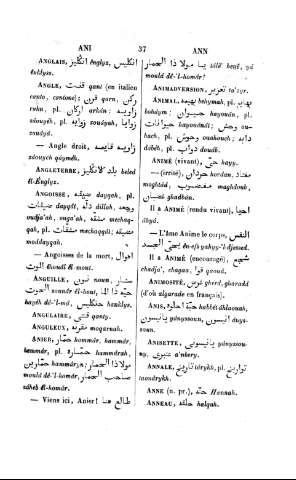 ANI 37 ANN
ANGLAIS, انكليز ènglyz, انكليس
ènklyss.
ANGLE, قنت qant (en italien
canto, cantone); قرن qarn; ركن
rukn, pl. اركان arkân; زاويه
záouyèh, pl. زوايه zouâyah, زوايا
zouâyâ.
— Angle droit, زاويه قايمه
záouych qâyméh.
ANGLETERRE, بلد لانكليز bèled
él-Énglyz.
ANGOISSE, ضيقه dayqah, pl.
ضيقات dayqât; دله dillah,
oudja'ah, onga'ah, مشقه mechaq-
qah, pl. مشقات mechaqqât; مضيقه
moddayqah.
— Angoisses de la mort, اهوال
الموت éhouâl êl-mout.
ANGUILLE, نون noun, سمار
الحوت
hayéh dê-'l-mâ, حنكليس hanklys.
ANGULAIRE, قنتي qanty.
ANGULEUX, مقرنه moqarnah.
ANIER, حمار hammâr,
hammâr, pl. حماره hammârah,
حمارين hammâryn; مولا ذا الحمار
moulâ dê-'l-homâr, صاحب الحمار
sâheb êl-homâr.
— Viens ici, Anier! طالع هنا
يا مولا ذا الحمار
mould dê-'l-homâr!
ANIMADVERSION, تعزير ta'zyr.
ANIMAL, بهيمه behymah, pl. بهايم
bahâym; حيوان hayouân, pl.
حيوانات hayouânât; وحش ou-
hach, pl. وحوش ouhouch; دابه
dâbéh, pl. دواب douâb.
ANIMÉ (vivant), حي hayy.
— (irrité), حردان hardan, مغتاض
moghtâd, مغضوب maghdoub,
غضبان ghadbân.
Il a ANIMÉ (rendu vivant), احيا
âhyd.
— L'âme Anime le corps, النفس
يحيي الجسد én-efs yahyy-'l-djessed.
Il a ANIMÉ (encouragé), شجع
chadja', قوا qaoud.
ANIMOSITÉ, غرض gherd, gharadd
(d'où algarade en français).
ANIS, حبة حلاوه habbét-âhlaouah,
يانيسون yânyssoun, انيسون ânyssoun
ANISETTE, يانيسوني yânyssou-
ny, عنبري a'nbery.
ANNALE, تاريخ târykh, pl. تواريخ
taouârykh.
ANNE (n. pr.), حنه Hannah.
ANNEAU, حلقه halqah.